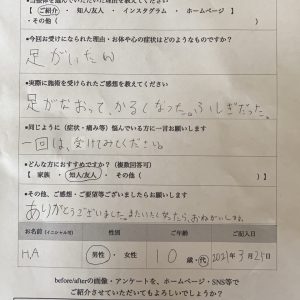 ●当整体を選んでいただいた理由を教えてください
【 ご紹介 ・ 知人/友人 ・ インスタグラム ・ ホームページ 】
・その他（ ）
●今回お受けになられた理由・お体や心の症状はどのようなものですか？
足がいたい
●実際に施術を受けられたご感想を教えてください
足がなおって、かるくなった。ふしぎだった。
●同じように（症状・痛み等）悩んでいる方に一言お願いします
一回は、受けてみてください。
●どんな方におすすめですか？（複数回答可）
【 家族 ・ 知人/友人 ・ その他（ ）
●その他、ご感想・ご要望等ございましたらお願いします
ありがとうございました。またいたくなったら、おねがいします。
お名前（イニシャル可） 性別 ご年齢 ご記入日
H.A 男性 ・ 女性 10 歳・代 2021年3月25日
before/afterの画像・アンケートを、ホームページ・SNS等で
ご紹介させていただいてもよろしいでしょうか？